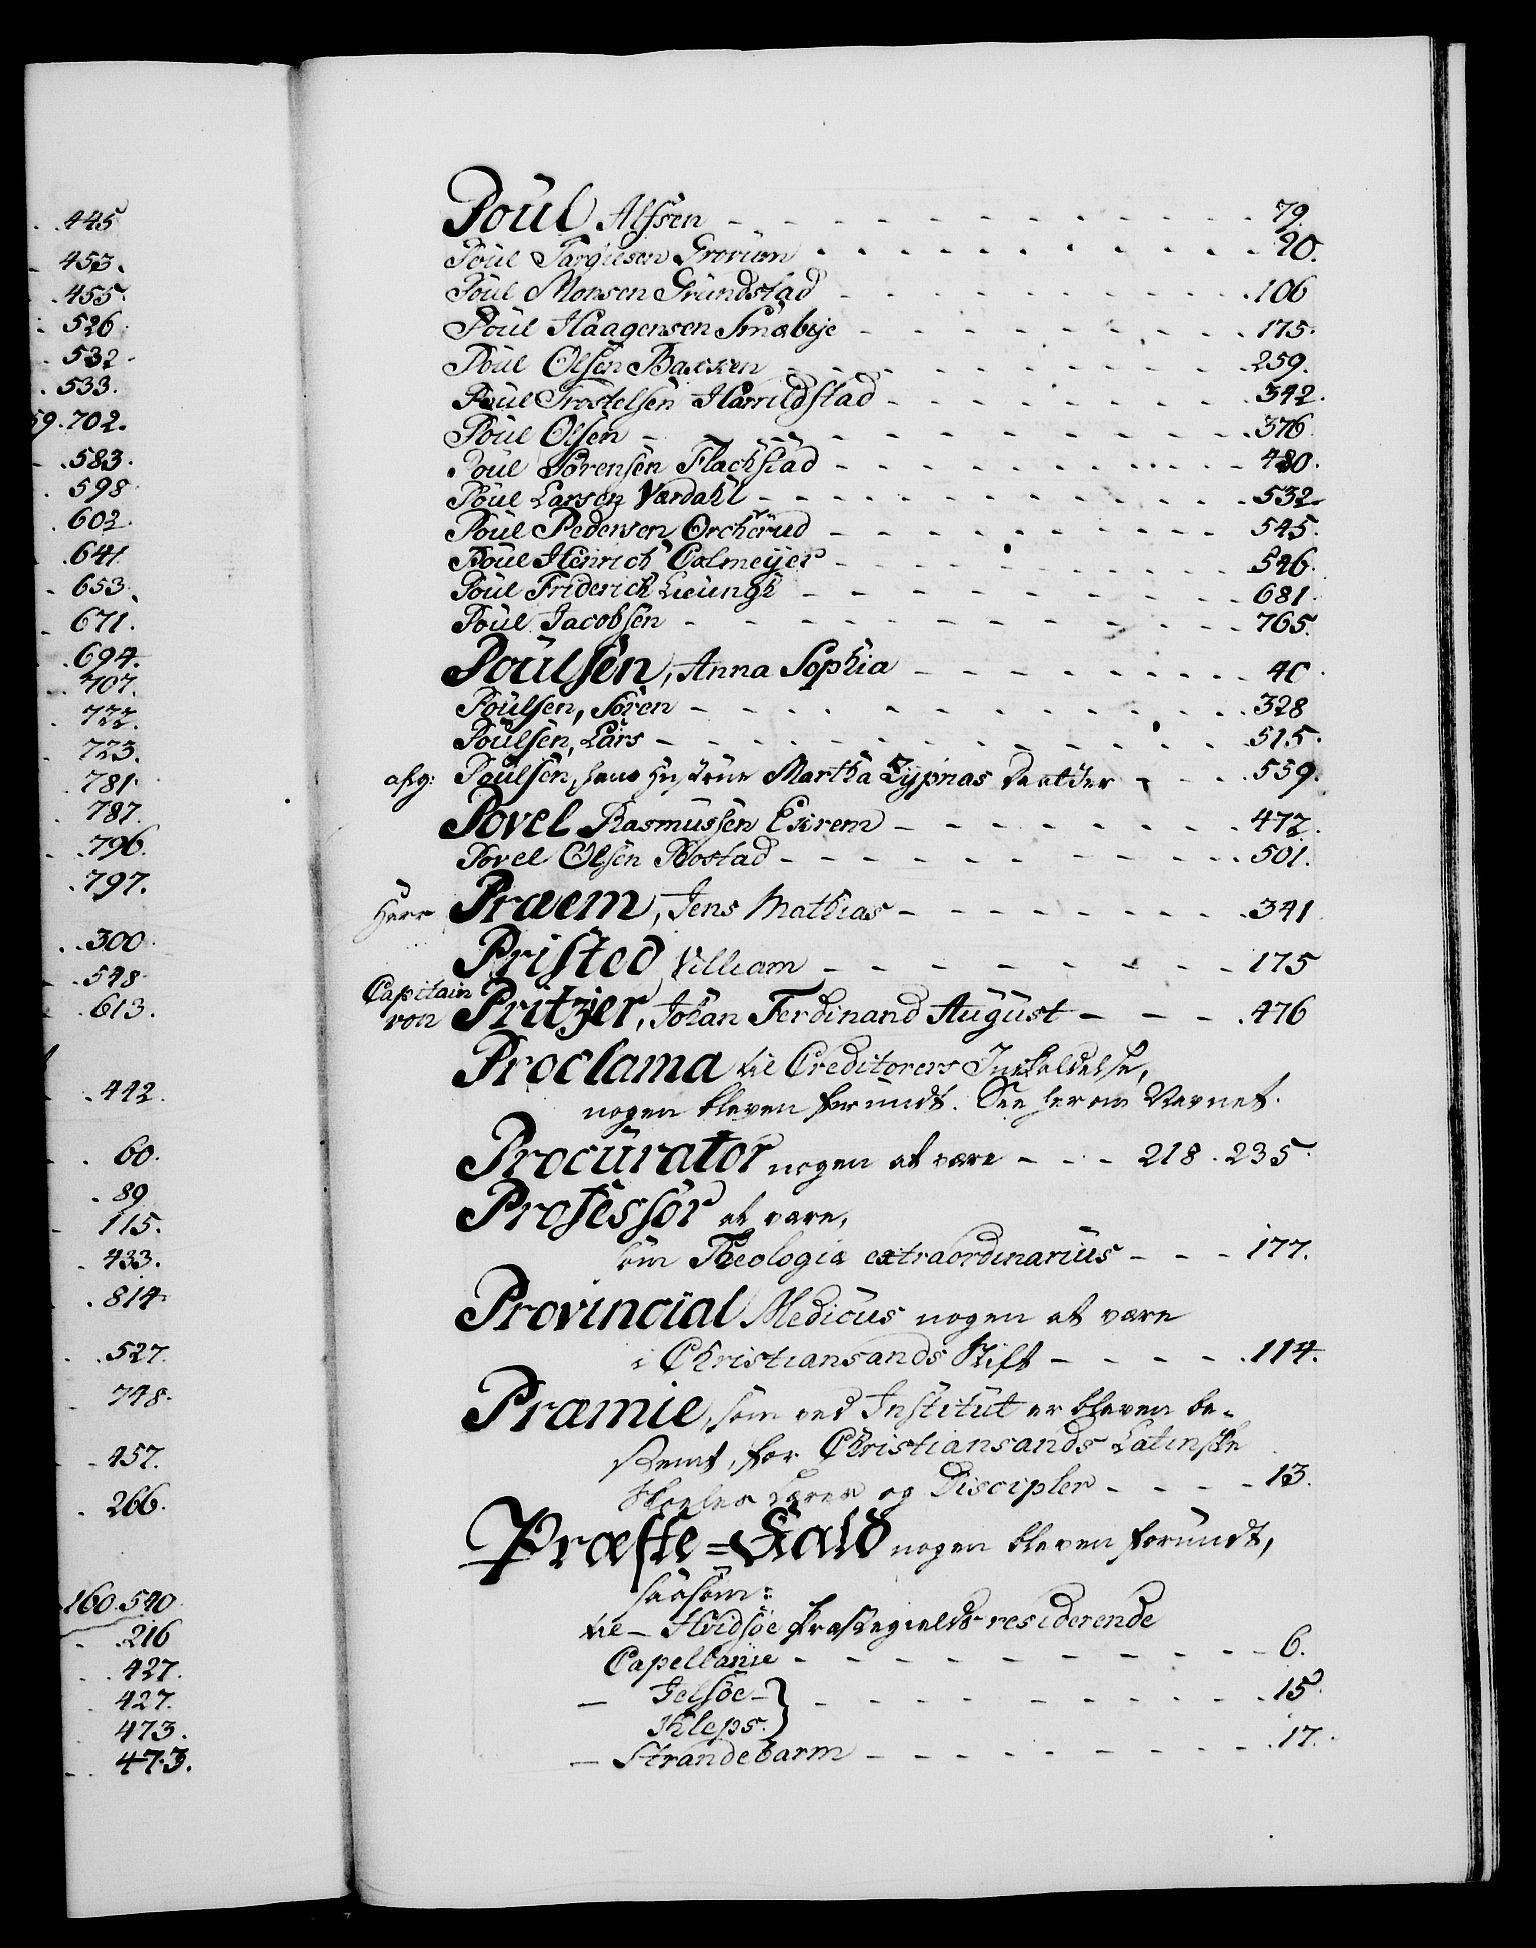 445
453.
455.
526
532
533.
59.702.
583.
598
602.
641
653.
671.
694.
707.
722.
723.
781
787.
796.
797.
300
548
613.
442.
60.
89
115.
433.
814
527.
748.
457.
266.
160.540
216
427.
427.
473.
473.
Poül Alfsen - - - 79
Poül Targiesen - - - 20.
Poül Monsen Gründstad - - - 106
Poül Haagensen - - - 175.
Poül Olsen Backen - - - 259.
Poül Harrildstad - - - 342.
Poül Olsen - - - 376
Poül Sörensen Flachstad - - - 480.
Poül Larsen Værdahl - - - 532.
Poül Pedersen Orcherud - - - 545.
Poül Henrich Calmeijer - - - 546.
Poül Friderich - - - 681
Poül Jacobsen - - - 765.
Poülsen, Anna Sophia - - - 40
Poülsen, Sören - - - 328
Poülsen, Lars - - - 515.
afg: Poülsen, hans Hustrue Martha - - - 559.
Povel Rasmussen Ekrem - - - 472.
Povel Olsen Bostad - - - 501.
Herr Præem, Jens Mathias - - - 341
Pristed William - - - 175
Capitain
von Pritzier, Johan Ferdinand August - - - 476
Proclama til Creditorers Indkaldelse,
nogen bleven forundt. See herom Navnet.
Procürator nogen at være - - - 218. 235.
Professor at være,
som Theologiæ extraordinariüs - - - 177.
Provincial Medicus nogen at være
i Christiansands Stift - - - 114.
Præmie, som ved Institut er bleven be-
stemt, for Christiansands Latinske
Skoeles Lærere og Discipler - - - 13.
Præste=Kald nogen bleven forundt,
saasom:
til - Hvidsöe Præstegields residerende
Capellanie - - - 6.
- Jelsöe - } - - - 15.
Kleps. }
- Strandebarm - - - 17.